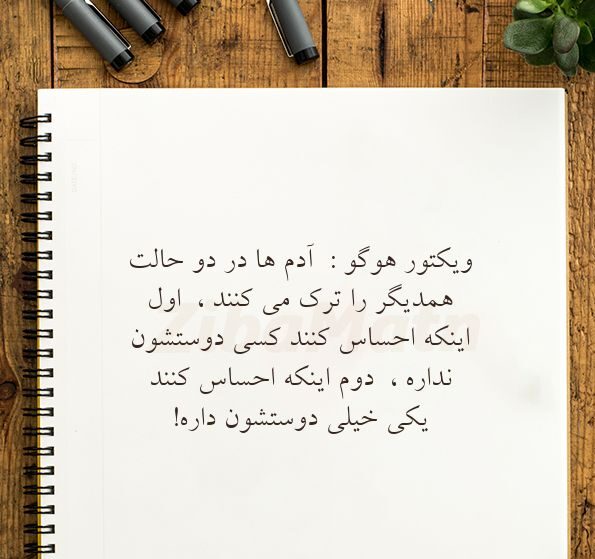 ویکتور هوگو : آدم ها در دو حالت
همدیگر را ترک می کنند ، اول
اینکه احساس کنند کسی دوستشون
نداره ، دوم اینکه احساس کنند
یکی خیلی دوستشون داره!
ZibaMatn